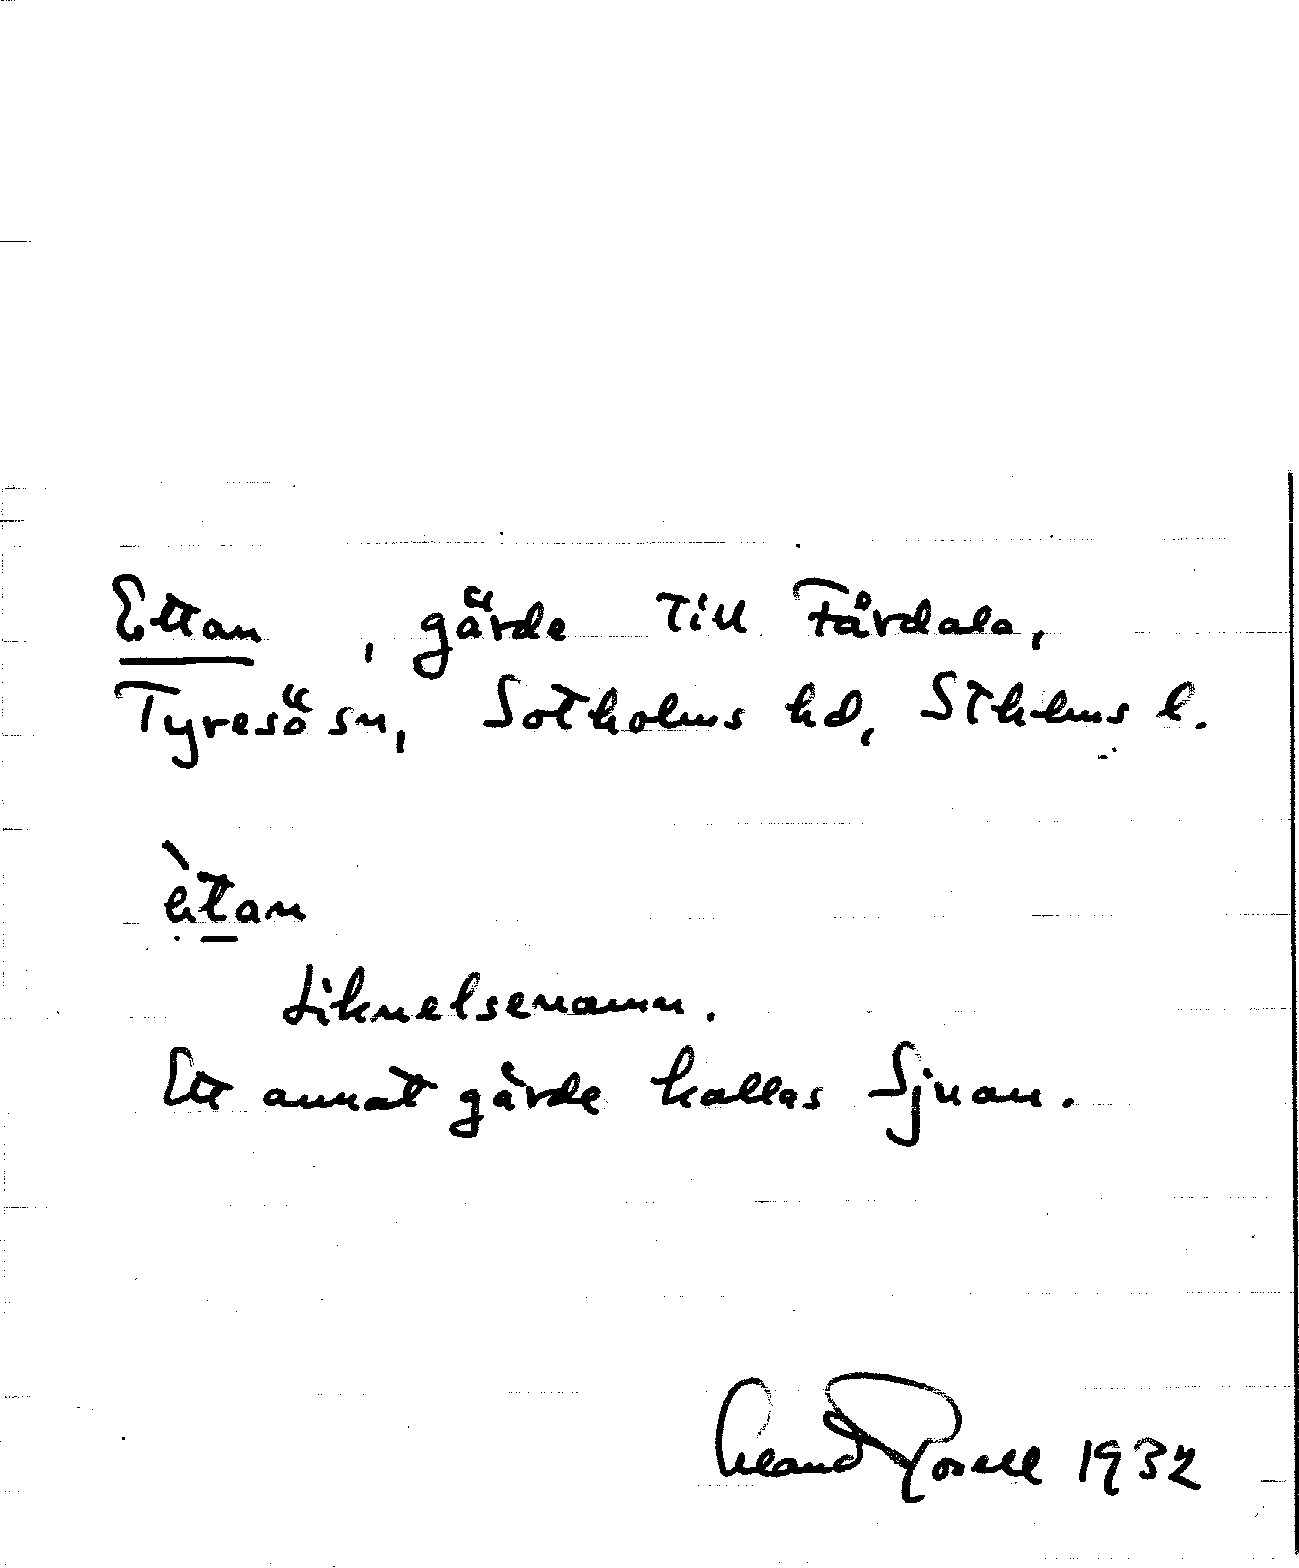 Ettan, gärde till Fårdala,
Tyresö sn, Sotholms hd, Sthlms l.
ètan
Liknelsenamn.
Ett annat gärde kallas Sjuan.
Claes Rosell 1932